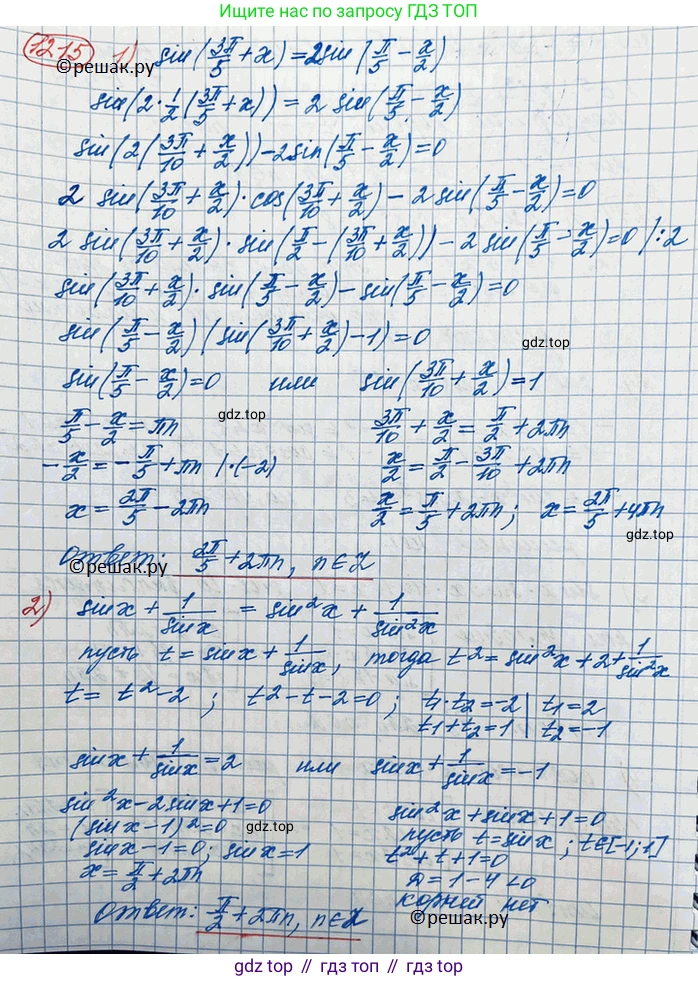 Ищите нас по запросу ГДЗ ТОП
12.15 1) sin(3π/5 + x) = 2sin(π/5 − x/2)
©решак.ру
sin(2·1/2(3π/5 + x)) = 2 sin(π/5 − x/2)
sin(2(3π/10 + x/2)) − 2sin(π/5 − x/2) = 0
2 sin(3π/10 + x/2)·cos(3π/10 + x/2) − 2 sin(π/5 − x/2) = 0
2 sin(3π/10 + x/2)·sin(π/2 − (3π/10 + x/2)) − 2 sin(π/5 − x/2) = 0 /:2
sin(3π/10 + x/2)·sin(π/5 − x/2) − sin(π/5 − x/2) = 0
sin(π/5 − x/2)(sin(3π/10 + x/2) − 1) = 0
gdz.top
sin(π/5 − x/2) = 0 или sin(3π/10 + x/2) = 1
gdz.top
π/5 − x/2 = πn 3π/10 + x/2 = π/2 + 2πn
−x/2 = −π/5 + πn /·(−2) x/2 = π/2 − 3π/10 + 2πn
x = 2π/5 − 2πn x/2 = π/5 + 2πn; x = 2π/5 + 4πn
gdz.top
Ответ: 2π/5 + 2πn, n∈Z
©решак.ру
2) sinx + 1/sinx = sin²x + 1/sin²x
пусть t = sinx + 1/sinx, тогда t² = sin²x + 2 + 1/sin²x
t = t² − 2; t² − t − 2 = 0; t₁·t₂ = −2 | t₁ = 2
t₁ + t₂ = 1 | t₂ = −1
sinx + 1/sinx = 2 или sinx + 1/sinx = −1
sin²x − 2sinx + 1 = 0 sin²x + sinx + 1 = 0
(sinx − 1)² = 0 пусть t = sinx; t∈[−1;1]
gdz.top
sinx − 1 = 0; sinx = 1 t² + t + 1 = 0
x = π/2 + 2πn Д = 1 − 4 < 0
корней нет
Ответ: π/2 + 2πn, n∈Z
©решак.ру
gdz.top // gdz.top // gdz.top // gdz.top